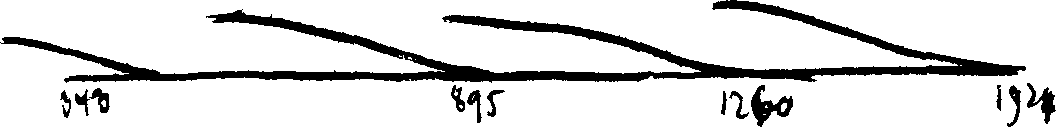 343 895 1260 1924